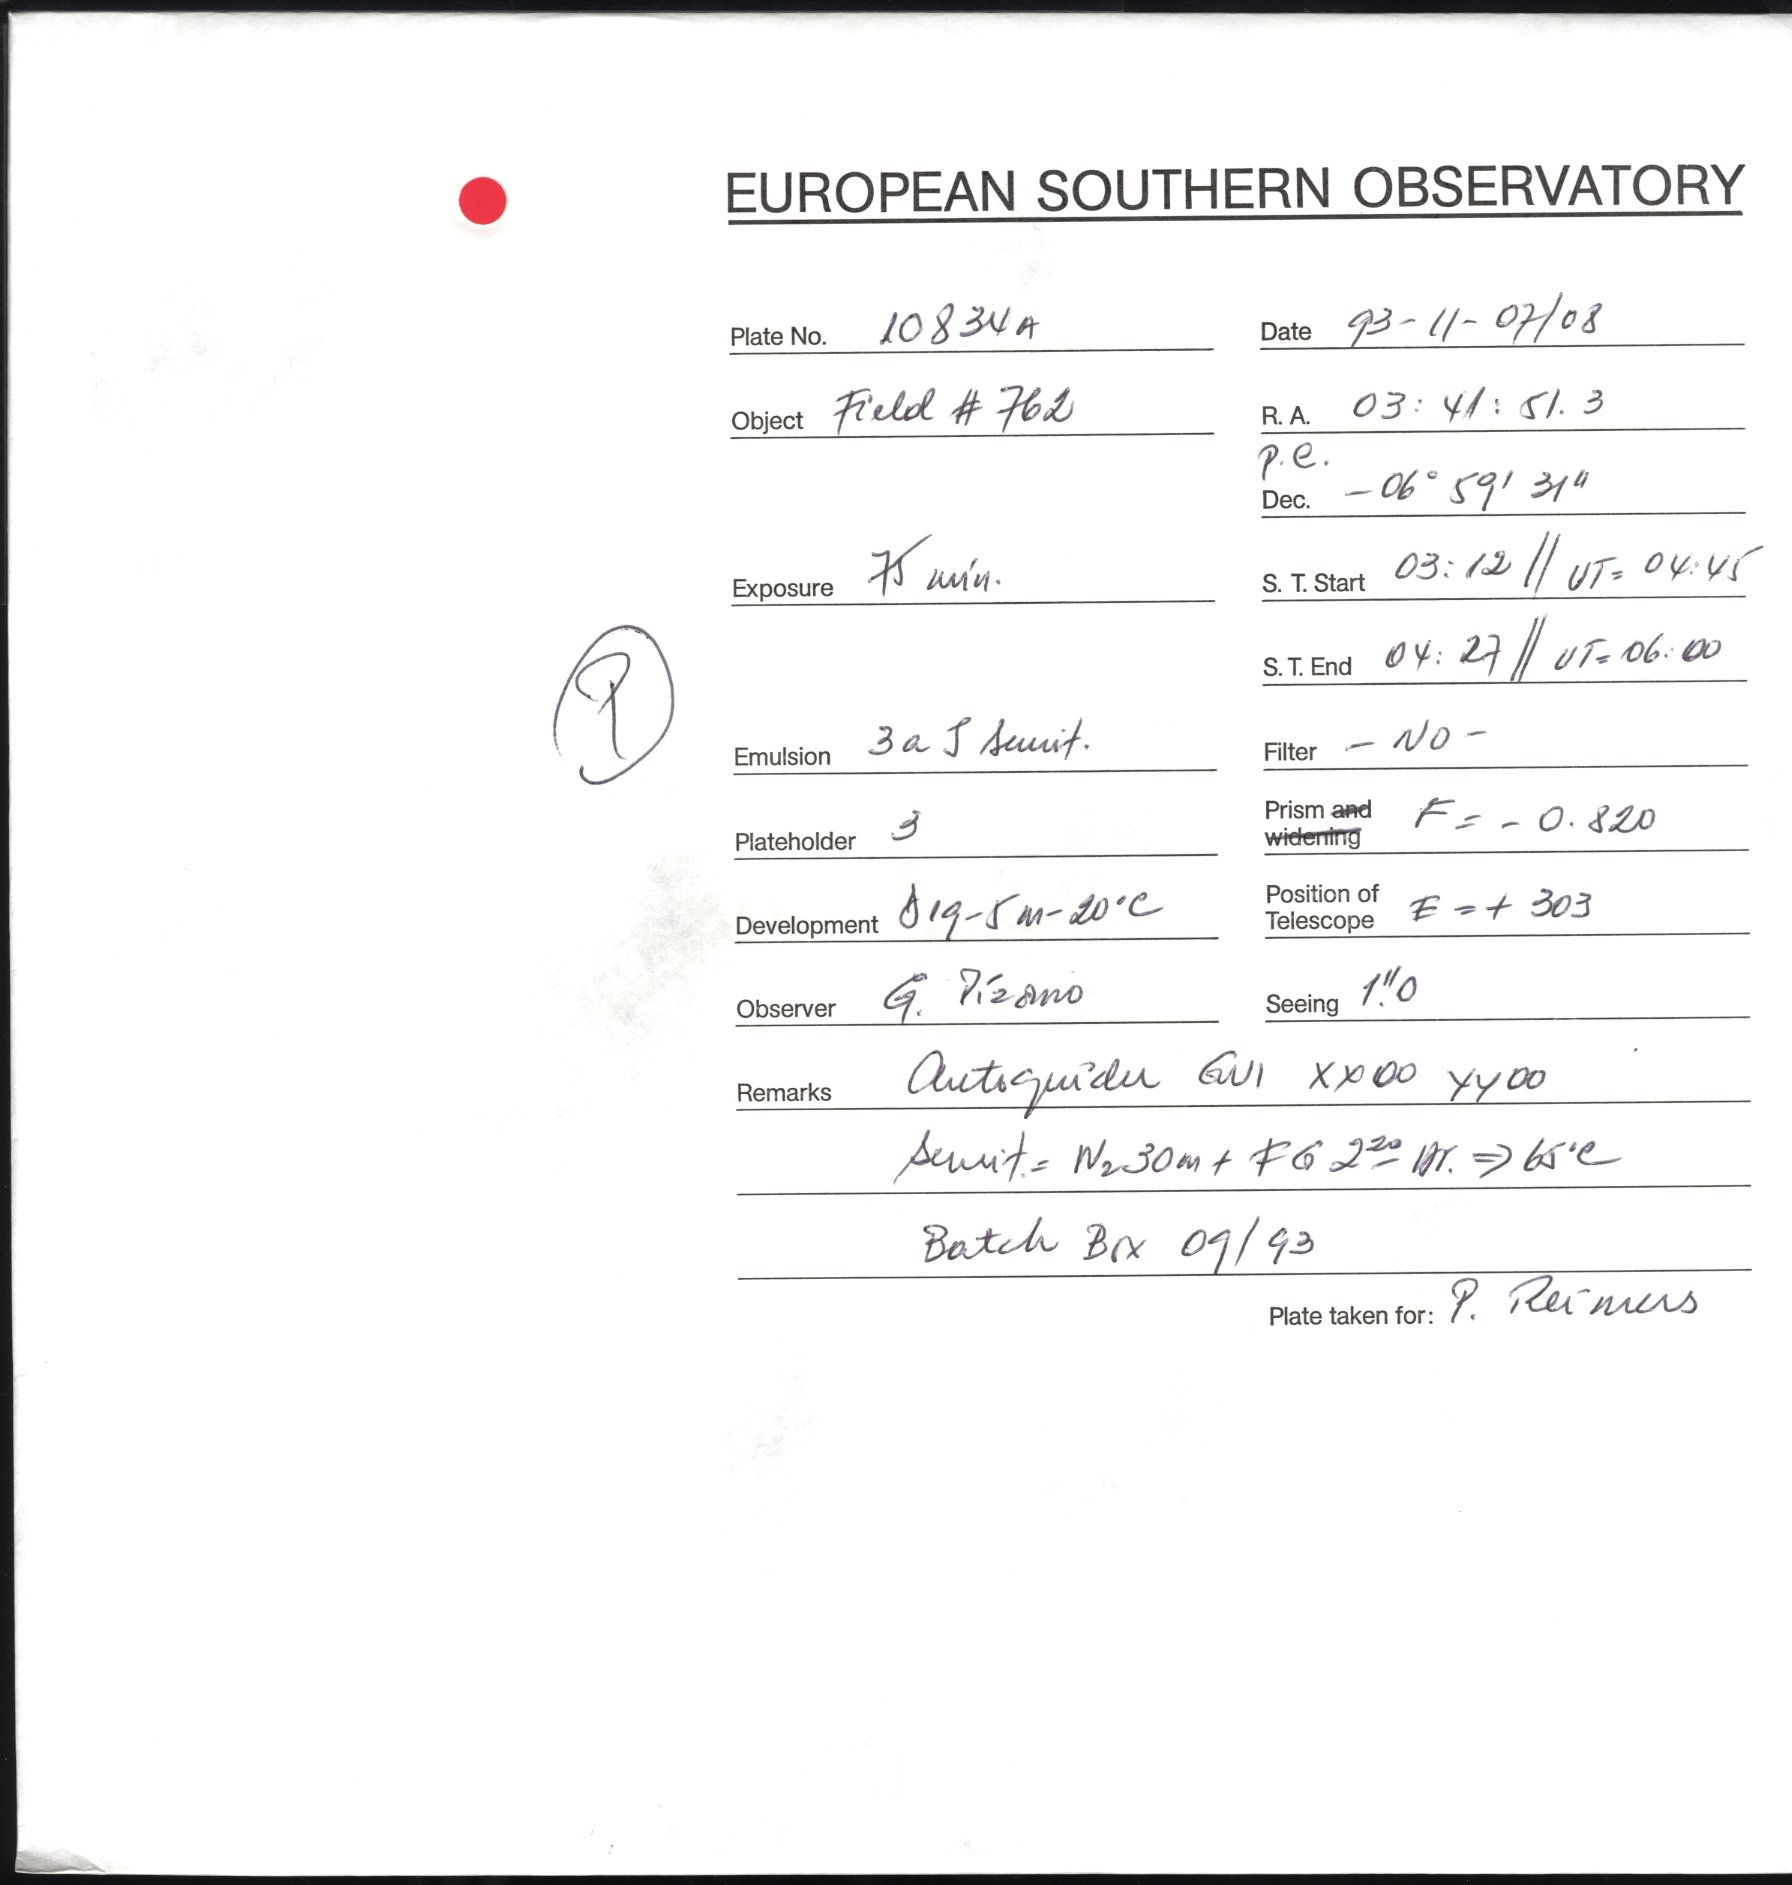 EUROPEAN SOUTHERN OBSERVATORY
Plate No. 10834A Date 93-11-07/08
Object Field # 762 R. A. 03: 41: 51. 3
p.e.
Dec. - 06° 59' 31"
Exposure 75 min. S. T. Start 03: 12 // UT= 04:45
S. T. End 04: 27 // UT= 06:00
P
Emulsion 3a J Sensit. Filter - NO -
Prism and widening F = - 0.820
Plateholder 3
Development D19-5m-20°C Position of Telescope E = + 303
Observer G. Pizarro Seeing 1".0
Remarks Autoguider GV1 XX00 YY00
Sensit.= N2 30m + FG 2 20 Hr. => 65°C
Batch Box 09/93
Plate taken for: P. Reimers